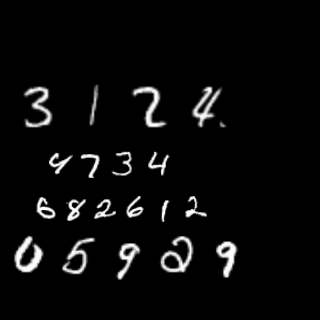 3 1 2 4
9 7 3 4
6 8 2 6 1 2
0 5 9 2 9